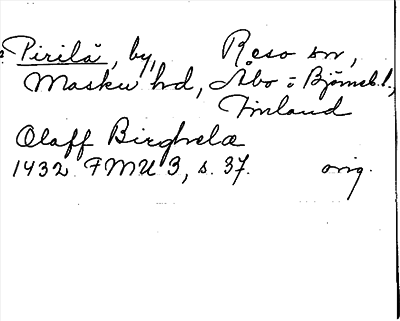 Pirilä, by, Reso sn,
Masku hd, Åbo o Björneb. l.,
Finland
Olaff Birghelæ
1432 FMU 3, s. 37. orig.